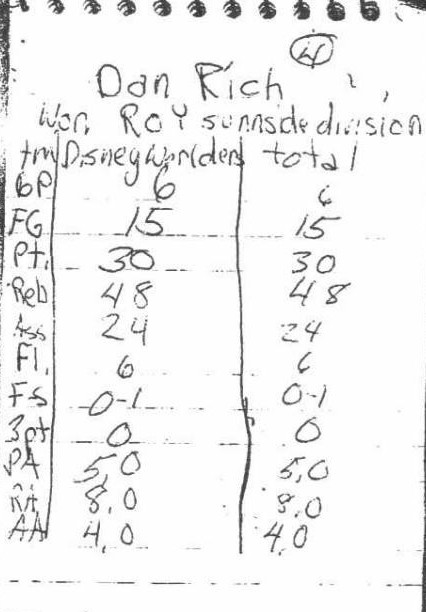 4
Dan Rich
Won ROY sunnside division
tm Disneyworlders total
GP 6 6
FG 15 15
Pt. 30 30
Reb 48 48
Ass 24 24
Fl. 6 6
Fs 0-1 0-1
3pt 0 0
PA 5,0 5,0
RA 8.0 8.0
AA 4,0 4,0